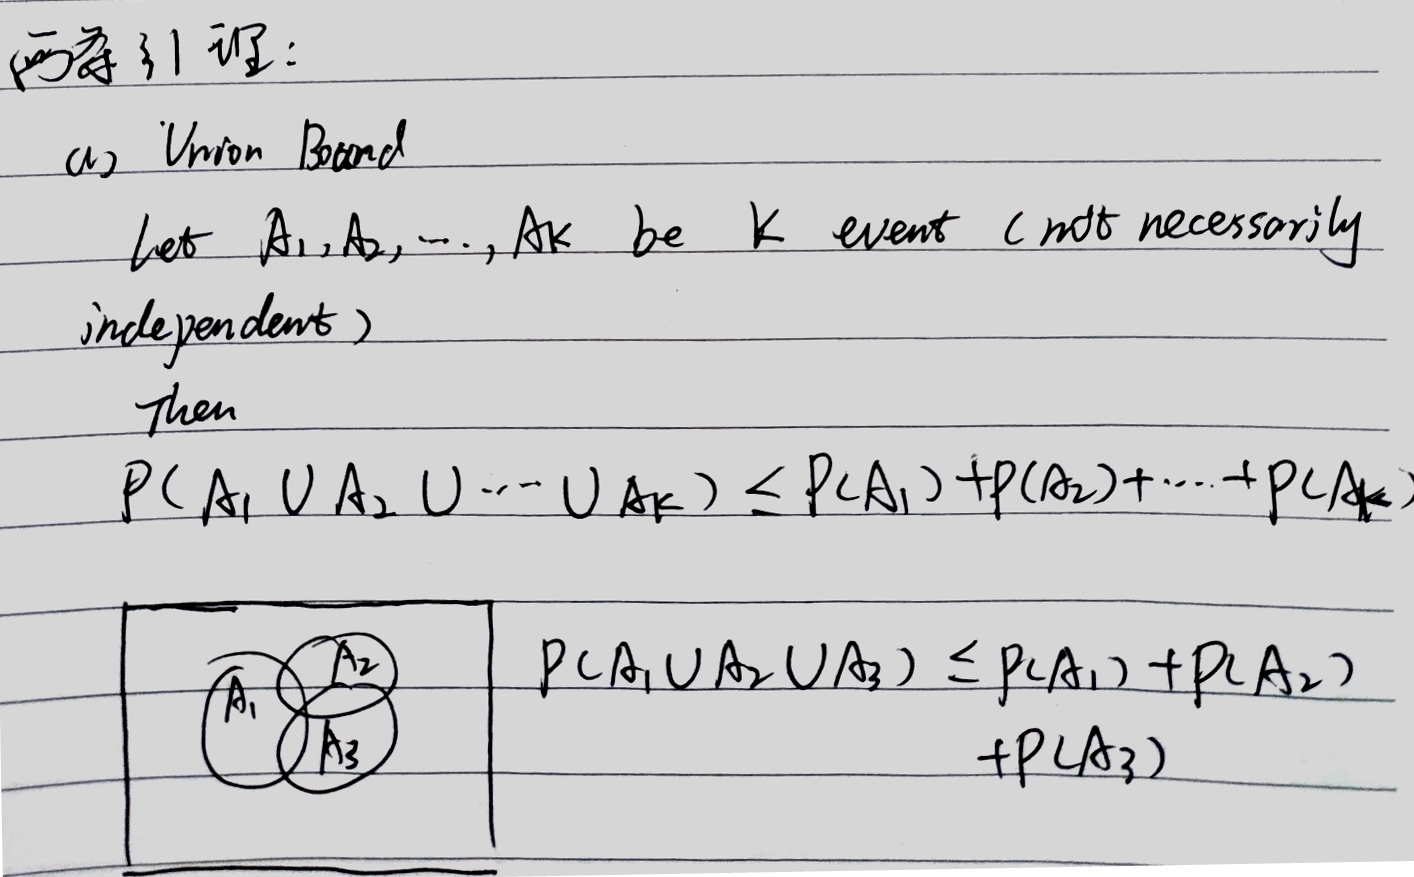 两条引理:
(1) Union Bound
Let A₁, A₂, ..., Aₖ be K event (not necessarily
independent)
Then
P(A₁ ∪ A₂ ∪ ... ∪ Aₖ) ≤ P(A₁) + P(A₂) + .... + P(Aₖ)
A₂
A₁
A₃
P(A₁ ∪ A₂ ∪ A₃) ≤ P(A₁) + P(A₂)
+ P(A₃)